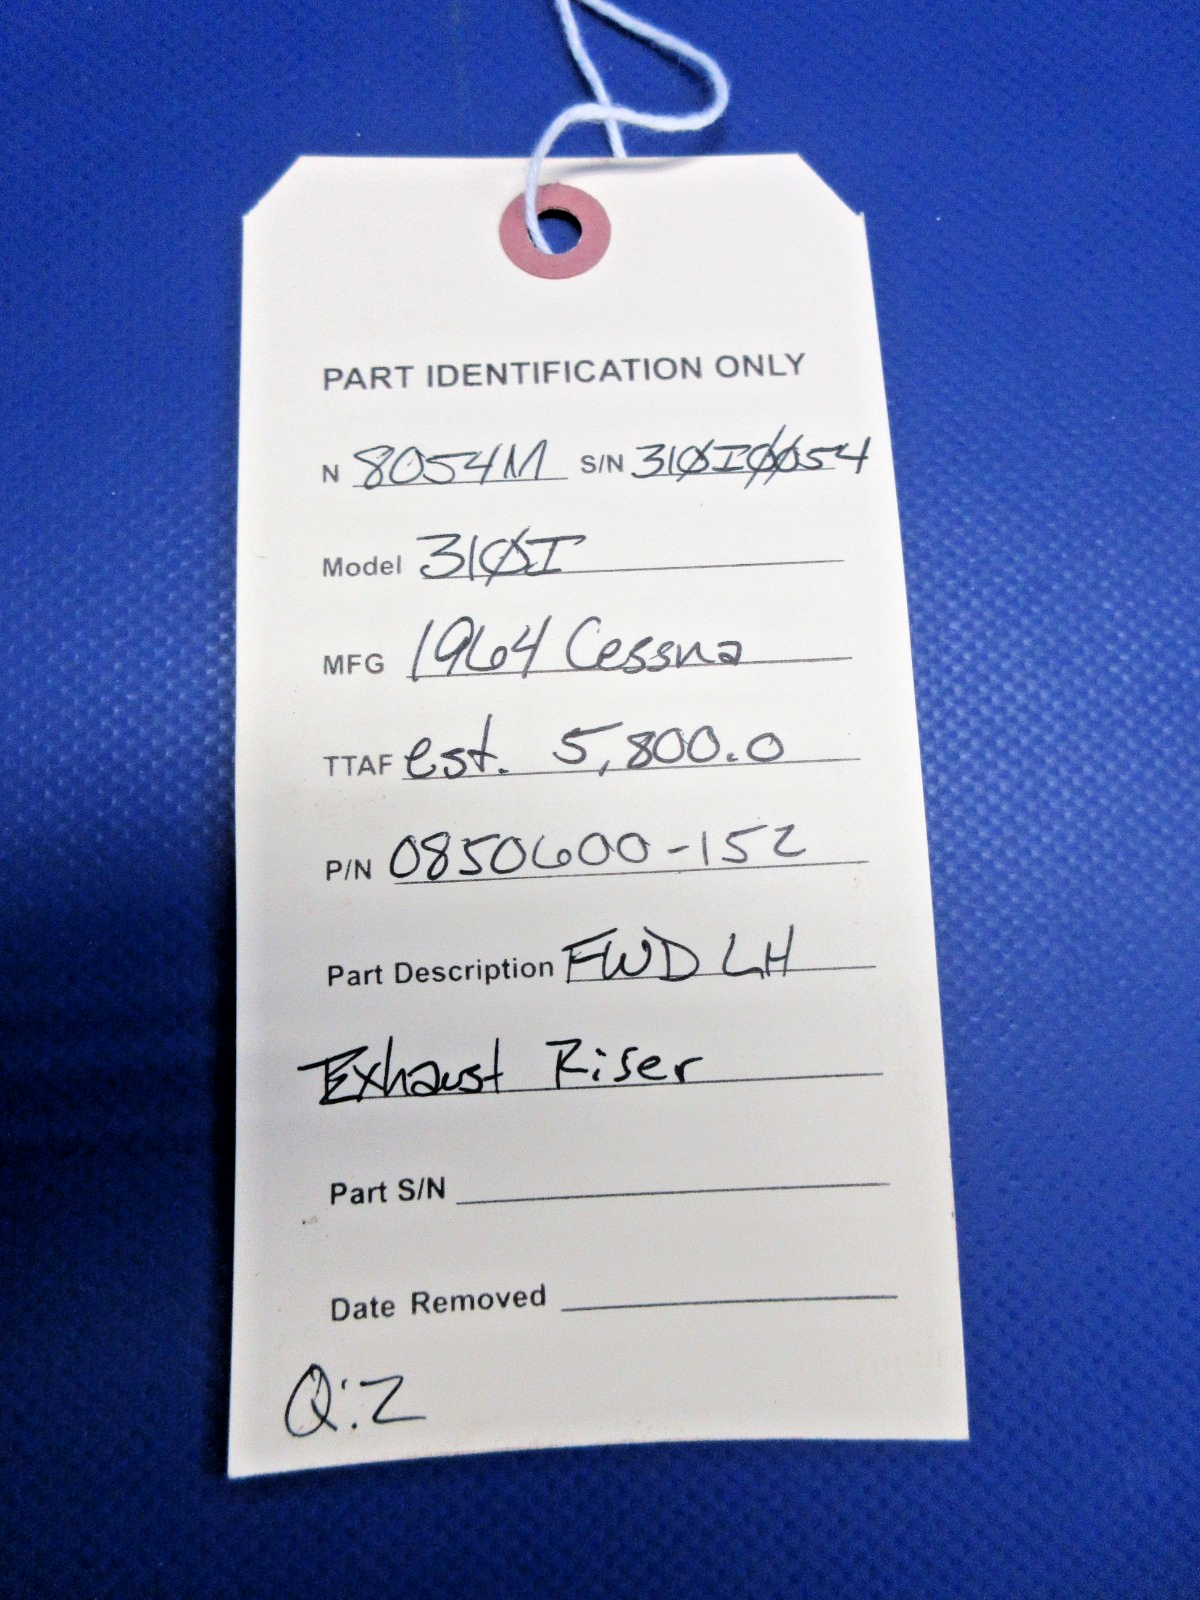 PART IDENTIFICATION ONLY
N 8054M S/N 310I0054
Model 310I
MFG 1964 Cessna
TTAF est. 5,800.0
P/N 0850600-152
Part Description FWD LH
Exhaust Riser
Part S/N
Date Removed
Q:2